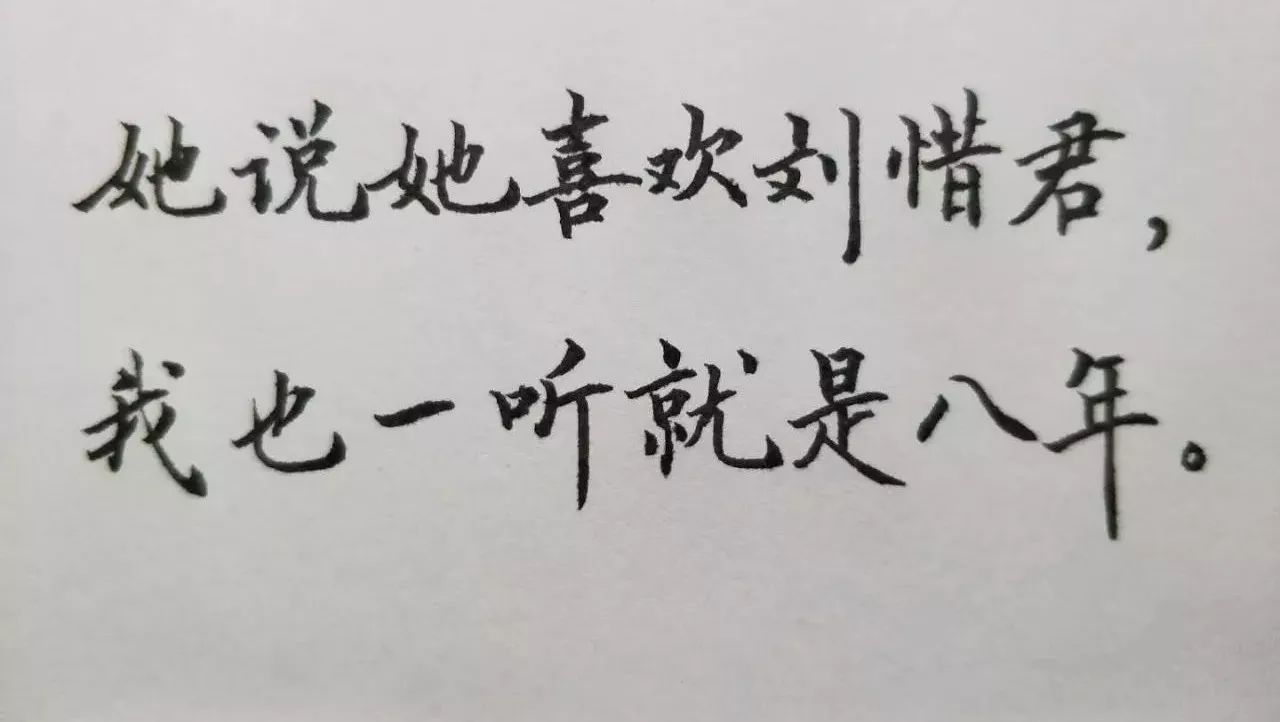 她说她喜欢刘惜君，
我也一听就是八年。